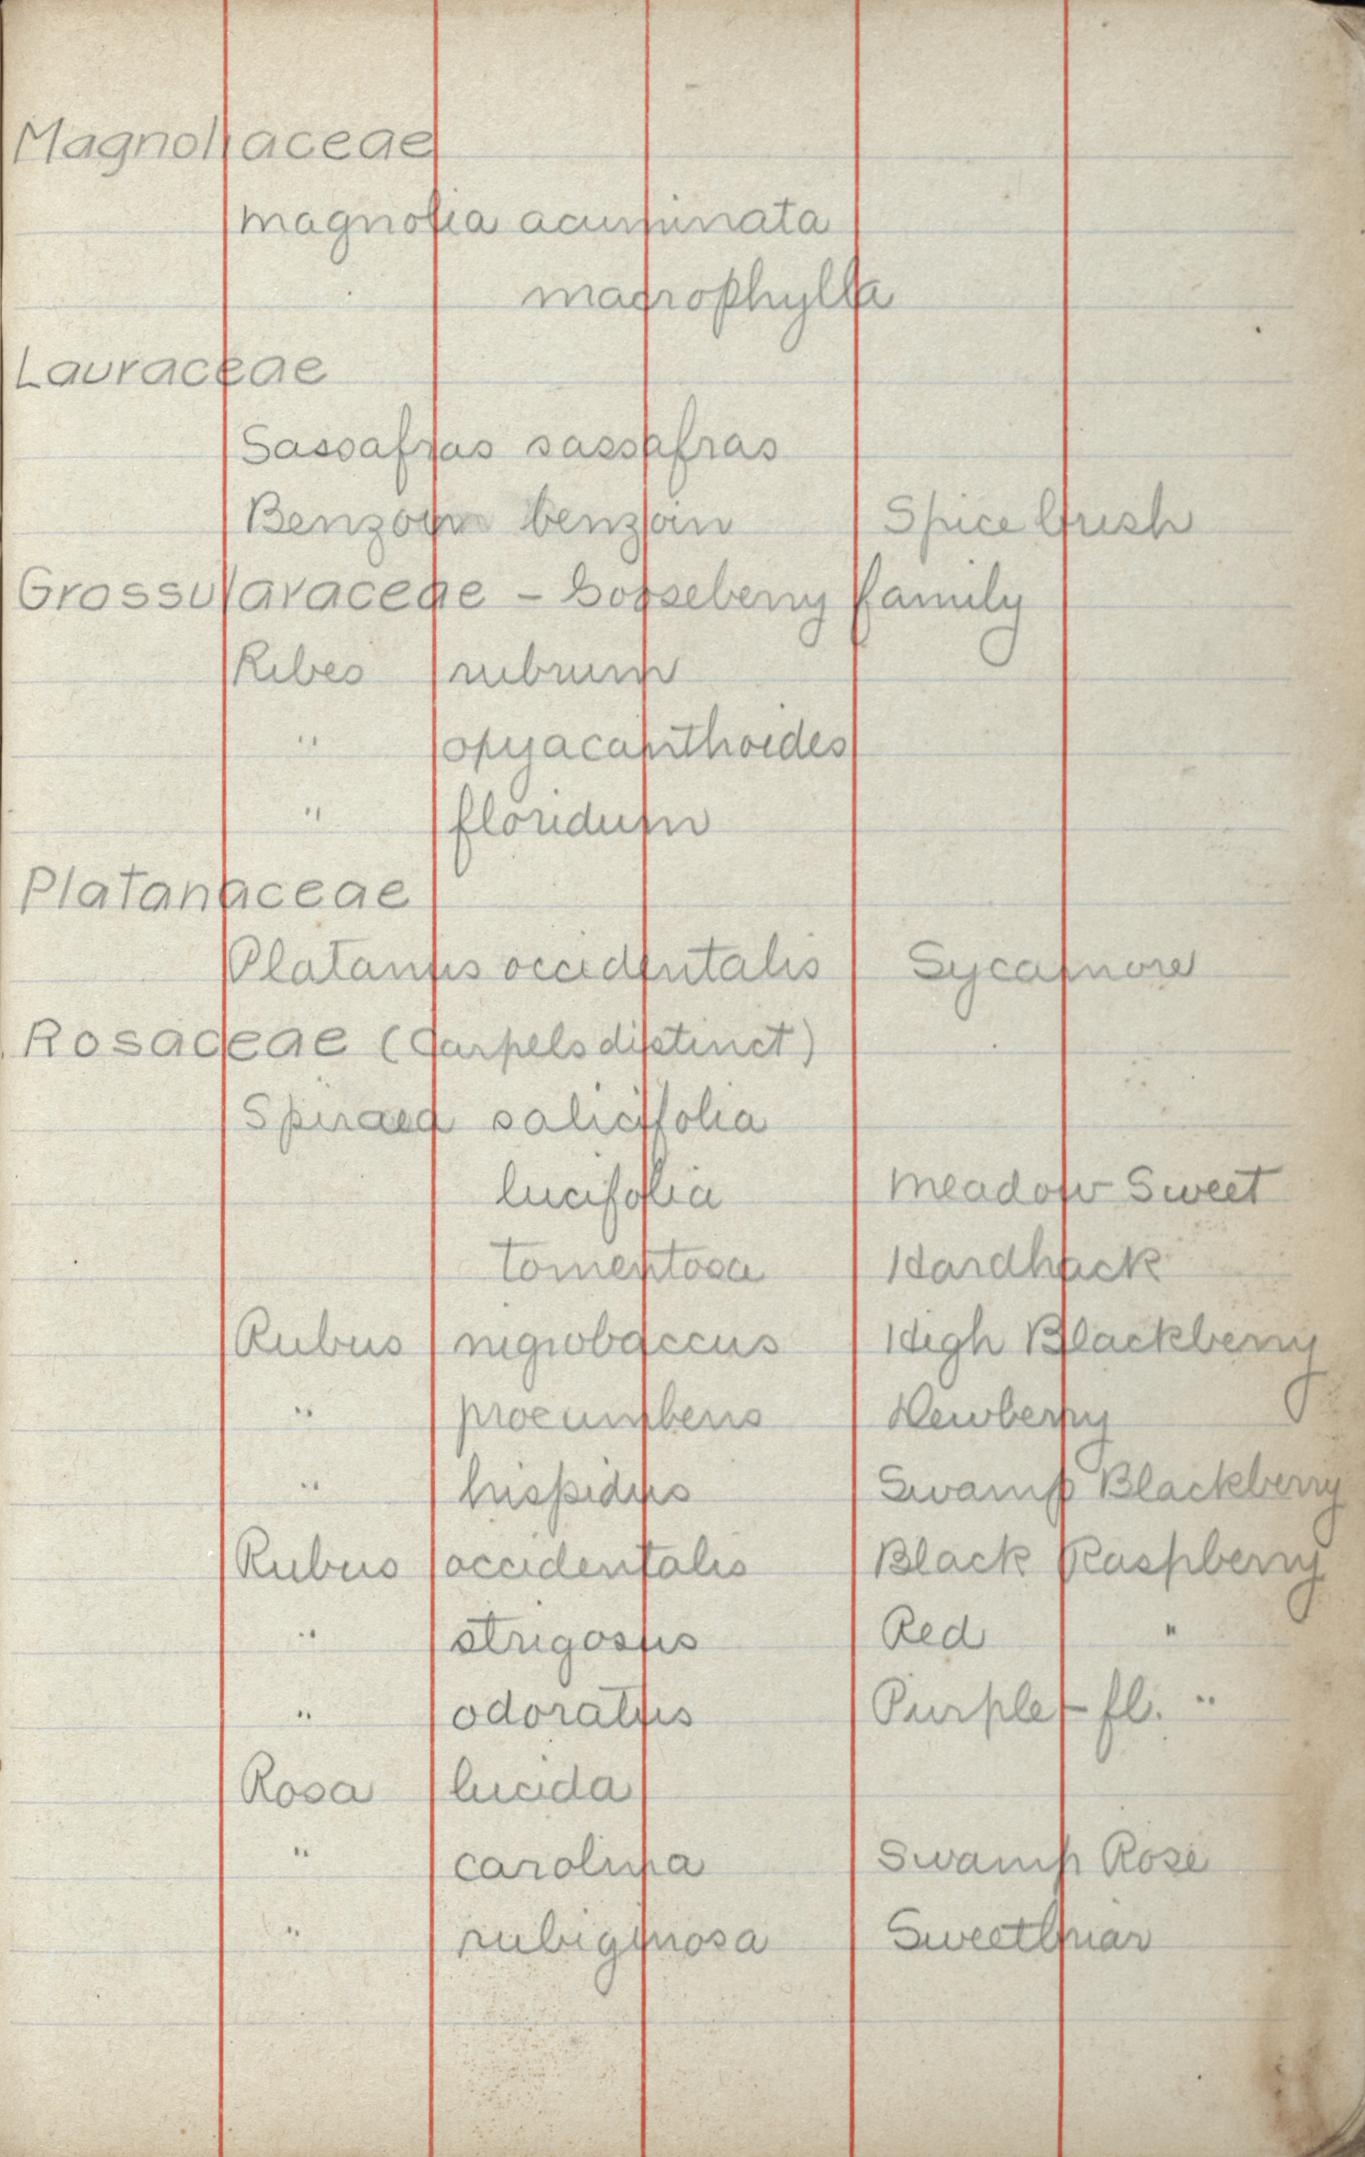 Magnoliaceae
magnolia acuminata
macrophylla
Lauraceae
Sassafras sassafras
Benzoin benzoin Spice bush
Grossularaceae - Gooseberry family
Ribes rubrum
" opyacanthoides
" floridum
Platanaceae
Platanus occidentalis Sycamore
Rosaceae (Carpels distinct)
Spiraea salicifolia
lucifolia Meadow Sweet
tomentosa Hardhack
Rubus nigrobaccus High Blackberry
" procumbens Dewberry
" hispidus Swamp Blackberry
Rubus occidentalis Black Raspberry
" strigosus Red "
" odoratus Purple-fl. "
Rosa lucida
" carolina Swamp Rose
" rubiginosa Sweetbriar